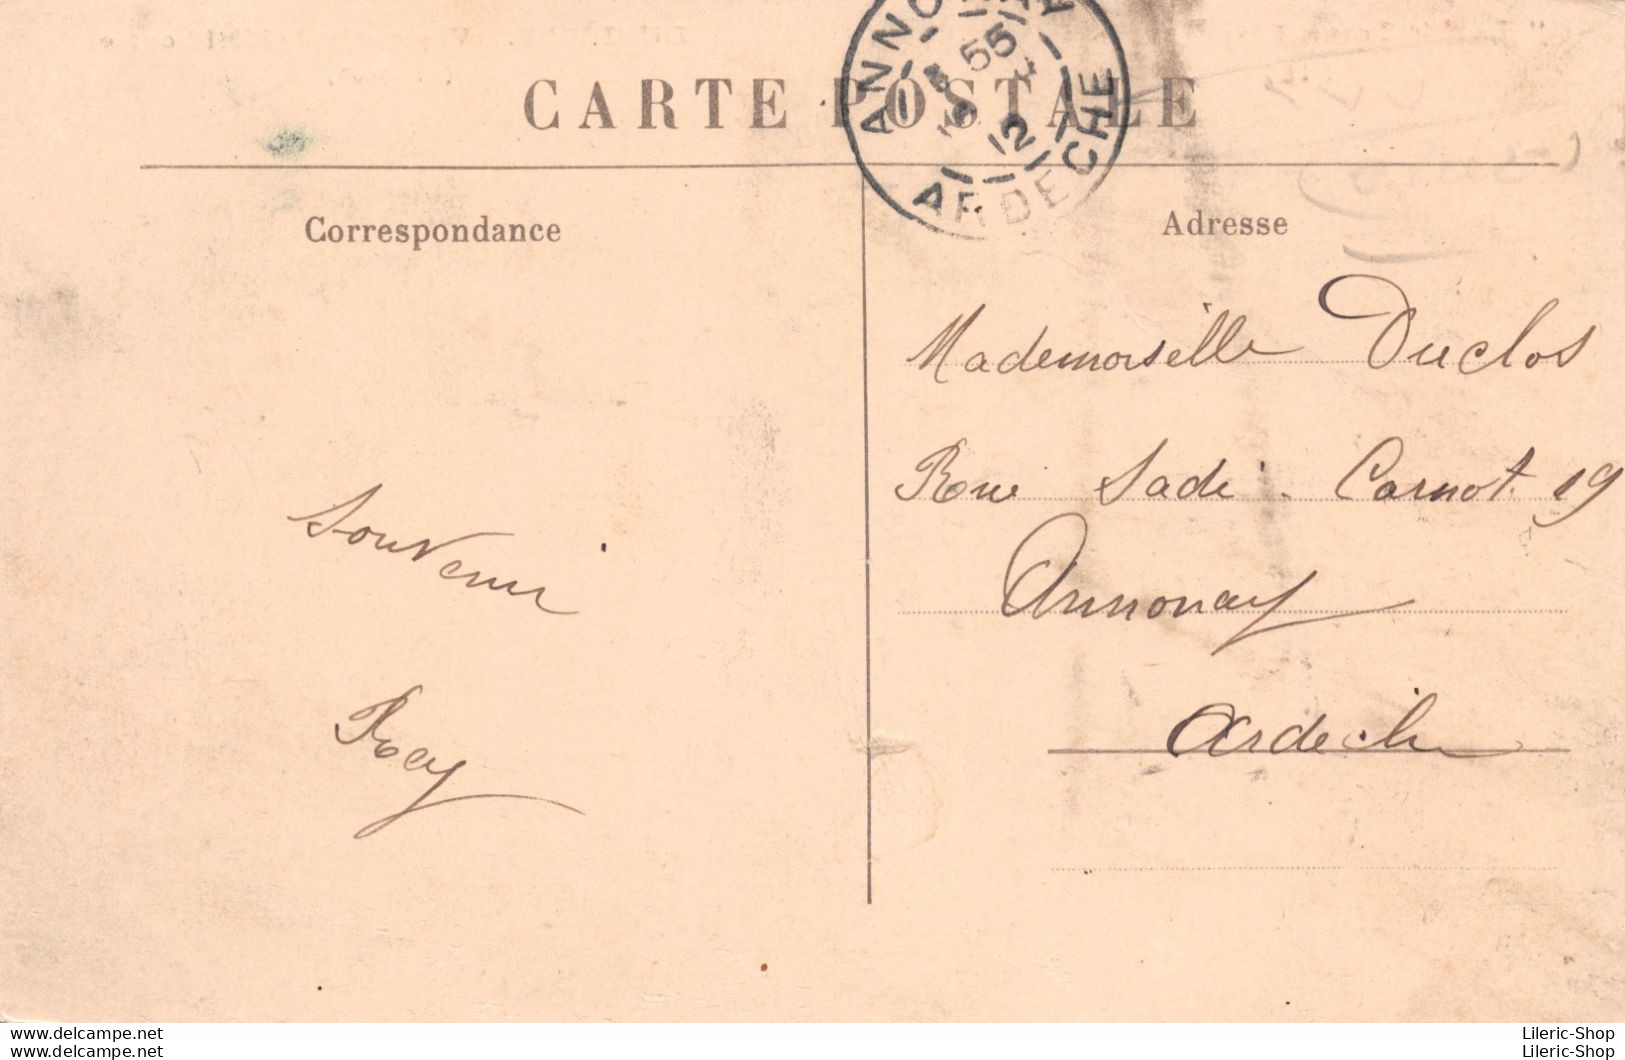 CARTE POSTALE
ANNONAY
55
12
ARDECHE
Correspondance
Adresse
Mademoiselle Duclos
Rue Sadi Carnot 19
Annonay
Ardèche
Souvenir
www.delcampe.net
www.delcampe.net
Lileric-Shop
Lileric-Shop